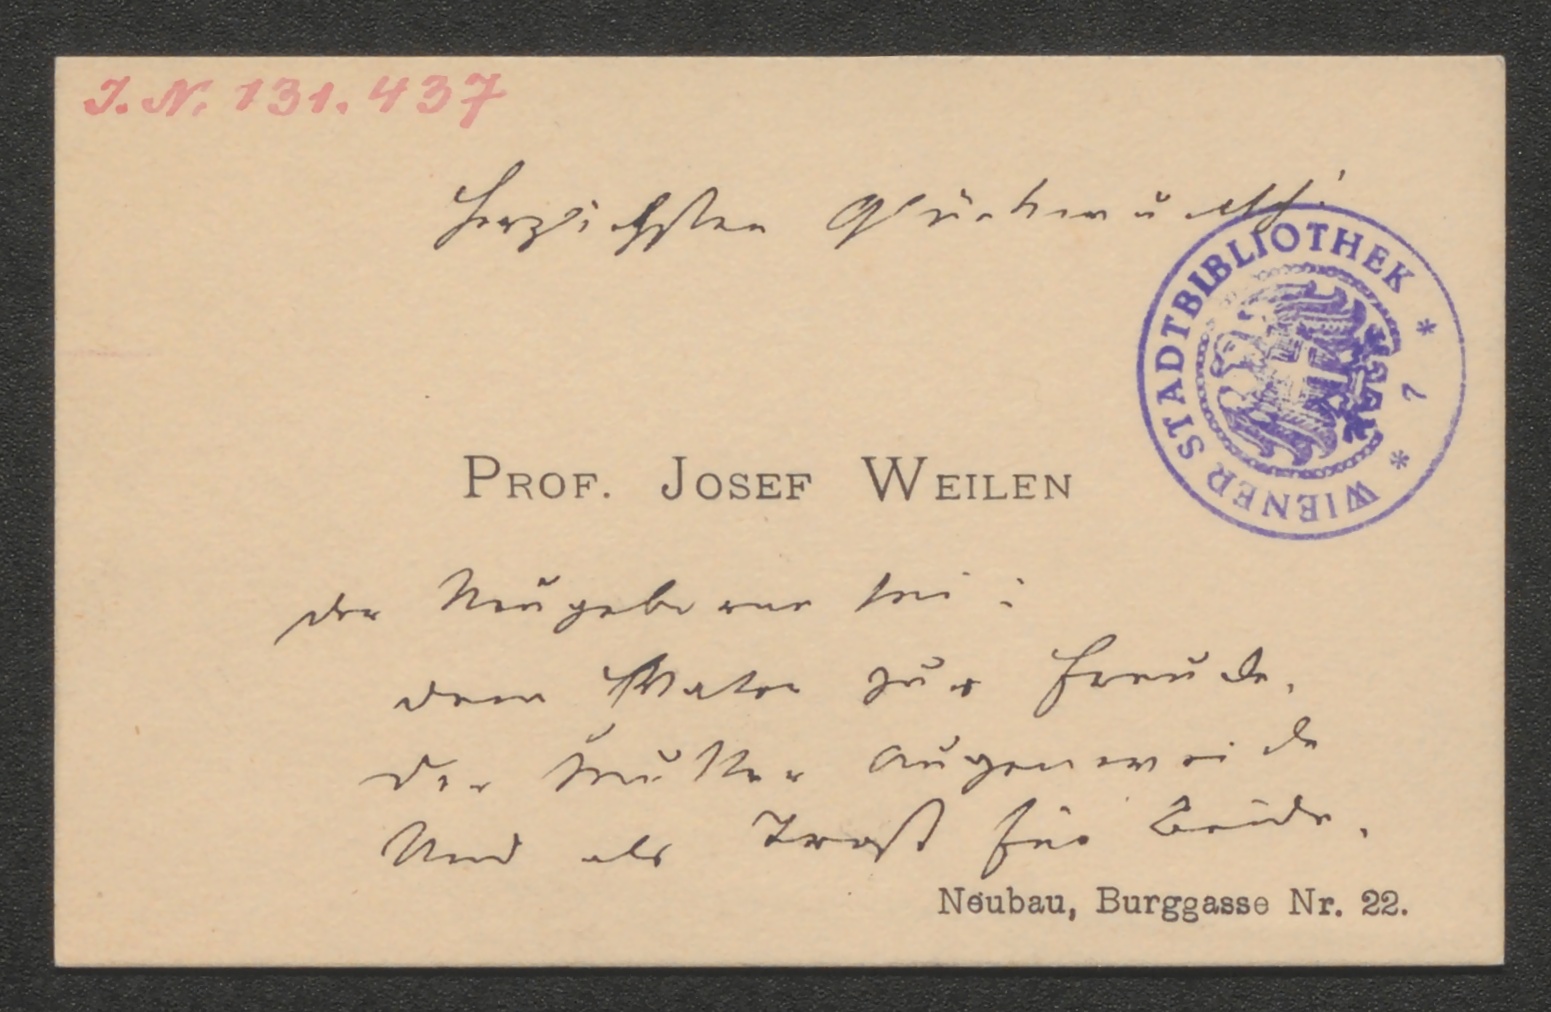 I. N. 131.437
Herzlichsten Glückwunsch!
WIENER STADTBIBLIOTHEK * 7 *
PROF. JOSEF WEILEN
der Neugeborne sei:
dem Vater zur Freude,
der Mutter Augenweide
Und als Trost für Beide.
Neubau, Burggasse Nr. 22.